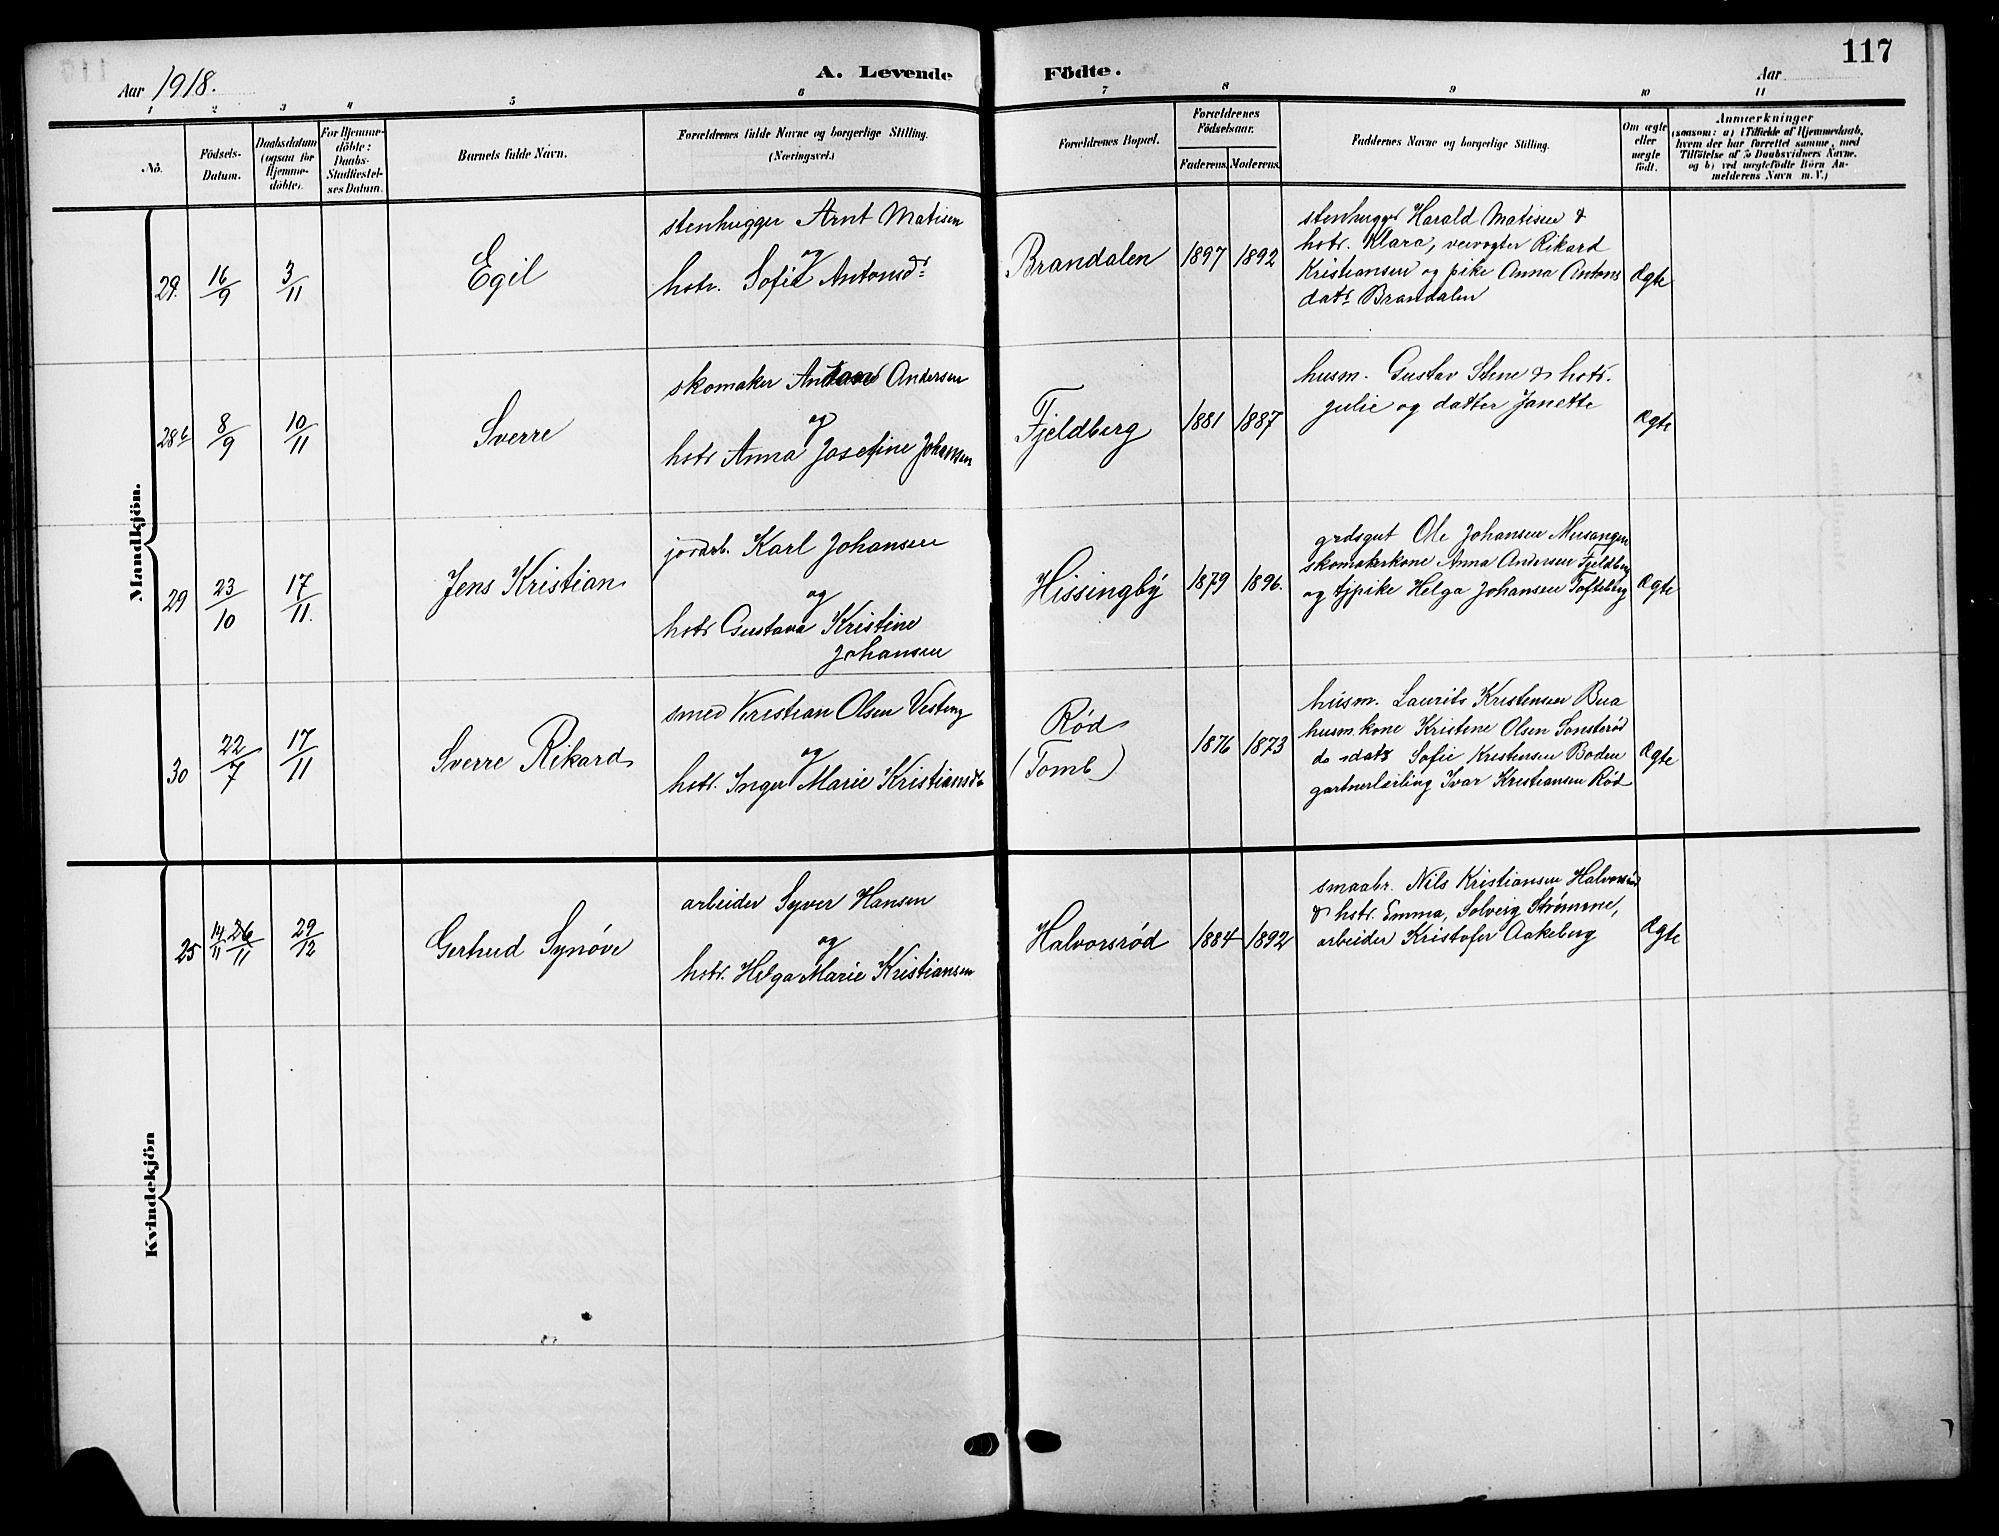 117
Aar 1918.
A. Levende Födte.
Aar
1 2 3 4 5 6 7 8 9 10 11
No.
Födsels-
Datum.
Daabsdatum
(ogsaa for
Hjemme-
döbte).
For Hjemme-
döbte:
Daabs-
Stadfæstel-
ses Datum.
Barnets fulde Navn.
Forældrenes fulde Navne og borgerlige Stilling.
(Næringsvei.)
Forældrenes Bopæl.
Forældrenes
Födselsaar.
Faderens. Moderens.
Faddernes Navne og borgerlige Stilling.
Om ægte
eller
uægte
født.
Anmærkninger
(saasom: a) i Tilfælde af Hjemmedaab,
hvem der har forrettet samme, med
Tilföielse af 2 Daabsvidners Navne,
og b) ved uægtefödte Börn An-
melderens Navn m. V.)
Mandkjön.
29. 16/9 3/11
Egil
stenhugger Arnt Matisen
og
hstr. Sofie Antonsdr
Brandalen
1897 1892
stenhugger Harald Matisen &
hstr. Klara, veivogter Rikard
Kristiansen og pike Anna Antons
datr Brandalen
Ægte
28b 8/9 10/11
Sverre
skomaker Andersen
og
hstr Anna Josefine Johansen
Fjeldberg
1881 1887
husm. Gustav Stene & hstr.
Julie og datter Janette
Ægte
29 23/10 17/11.
Jens Kristian
jordarb. Karl Johansen
og
hstr Gustava Kristine
Johansen
Hissingby
1879 1896.
grdsgut Ole Johansen
skomakerkone Anna Andersen Fjeldberg
og tjpike Helga Johansen Tofteberg
Ægte
30 22/7 17/11
Sverre Rikard
smed Kristian Olsen Vesteng
og
hstr. Inger Marie Kristiansdr
Rød
(Tomb)
1876 1873
husm. Laurits Kristensen Bua
husm.kone Kristine Olsen Sonsterød
do datr Sofie Kristensen Boden
gartnerlærling Ivar Kristiansen Rød
Ægte
Kvindekjön
25 14/11 26/11 29/12
Gertrud Synøve
arbeider Syver Hansen
og
hstr. Helga Marie Kristiansen
Halvorsrød
1884 1892
smaabr. Nils Kristiansen Halvorsrød
& hstr. Emma, Solveig Strømene,
arbeider Kristofer Aakeberg
Ægte